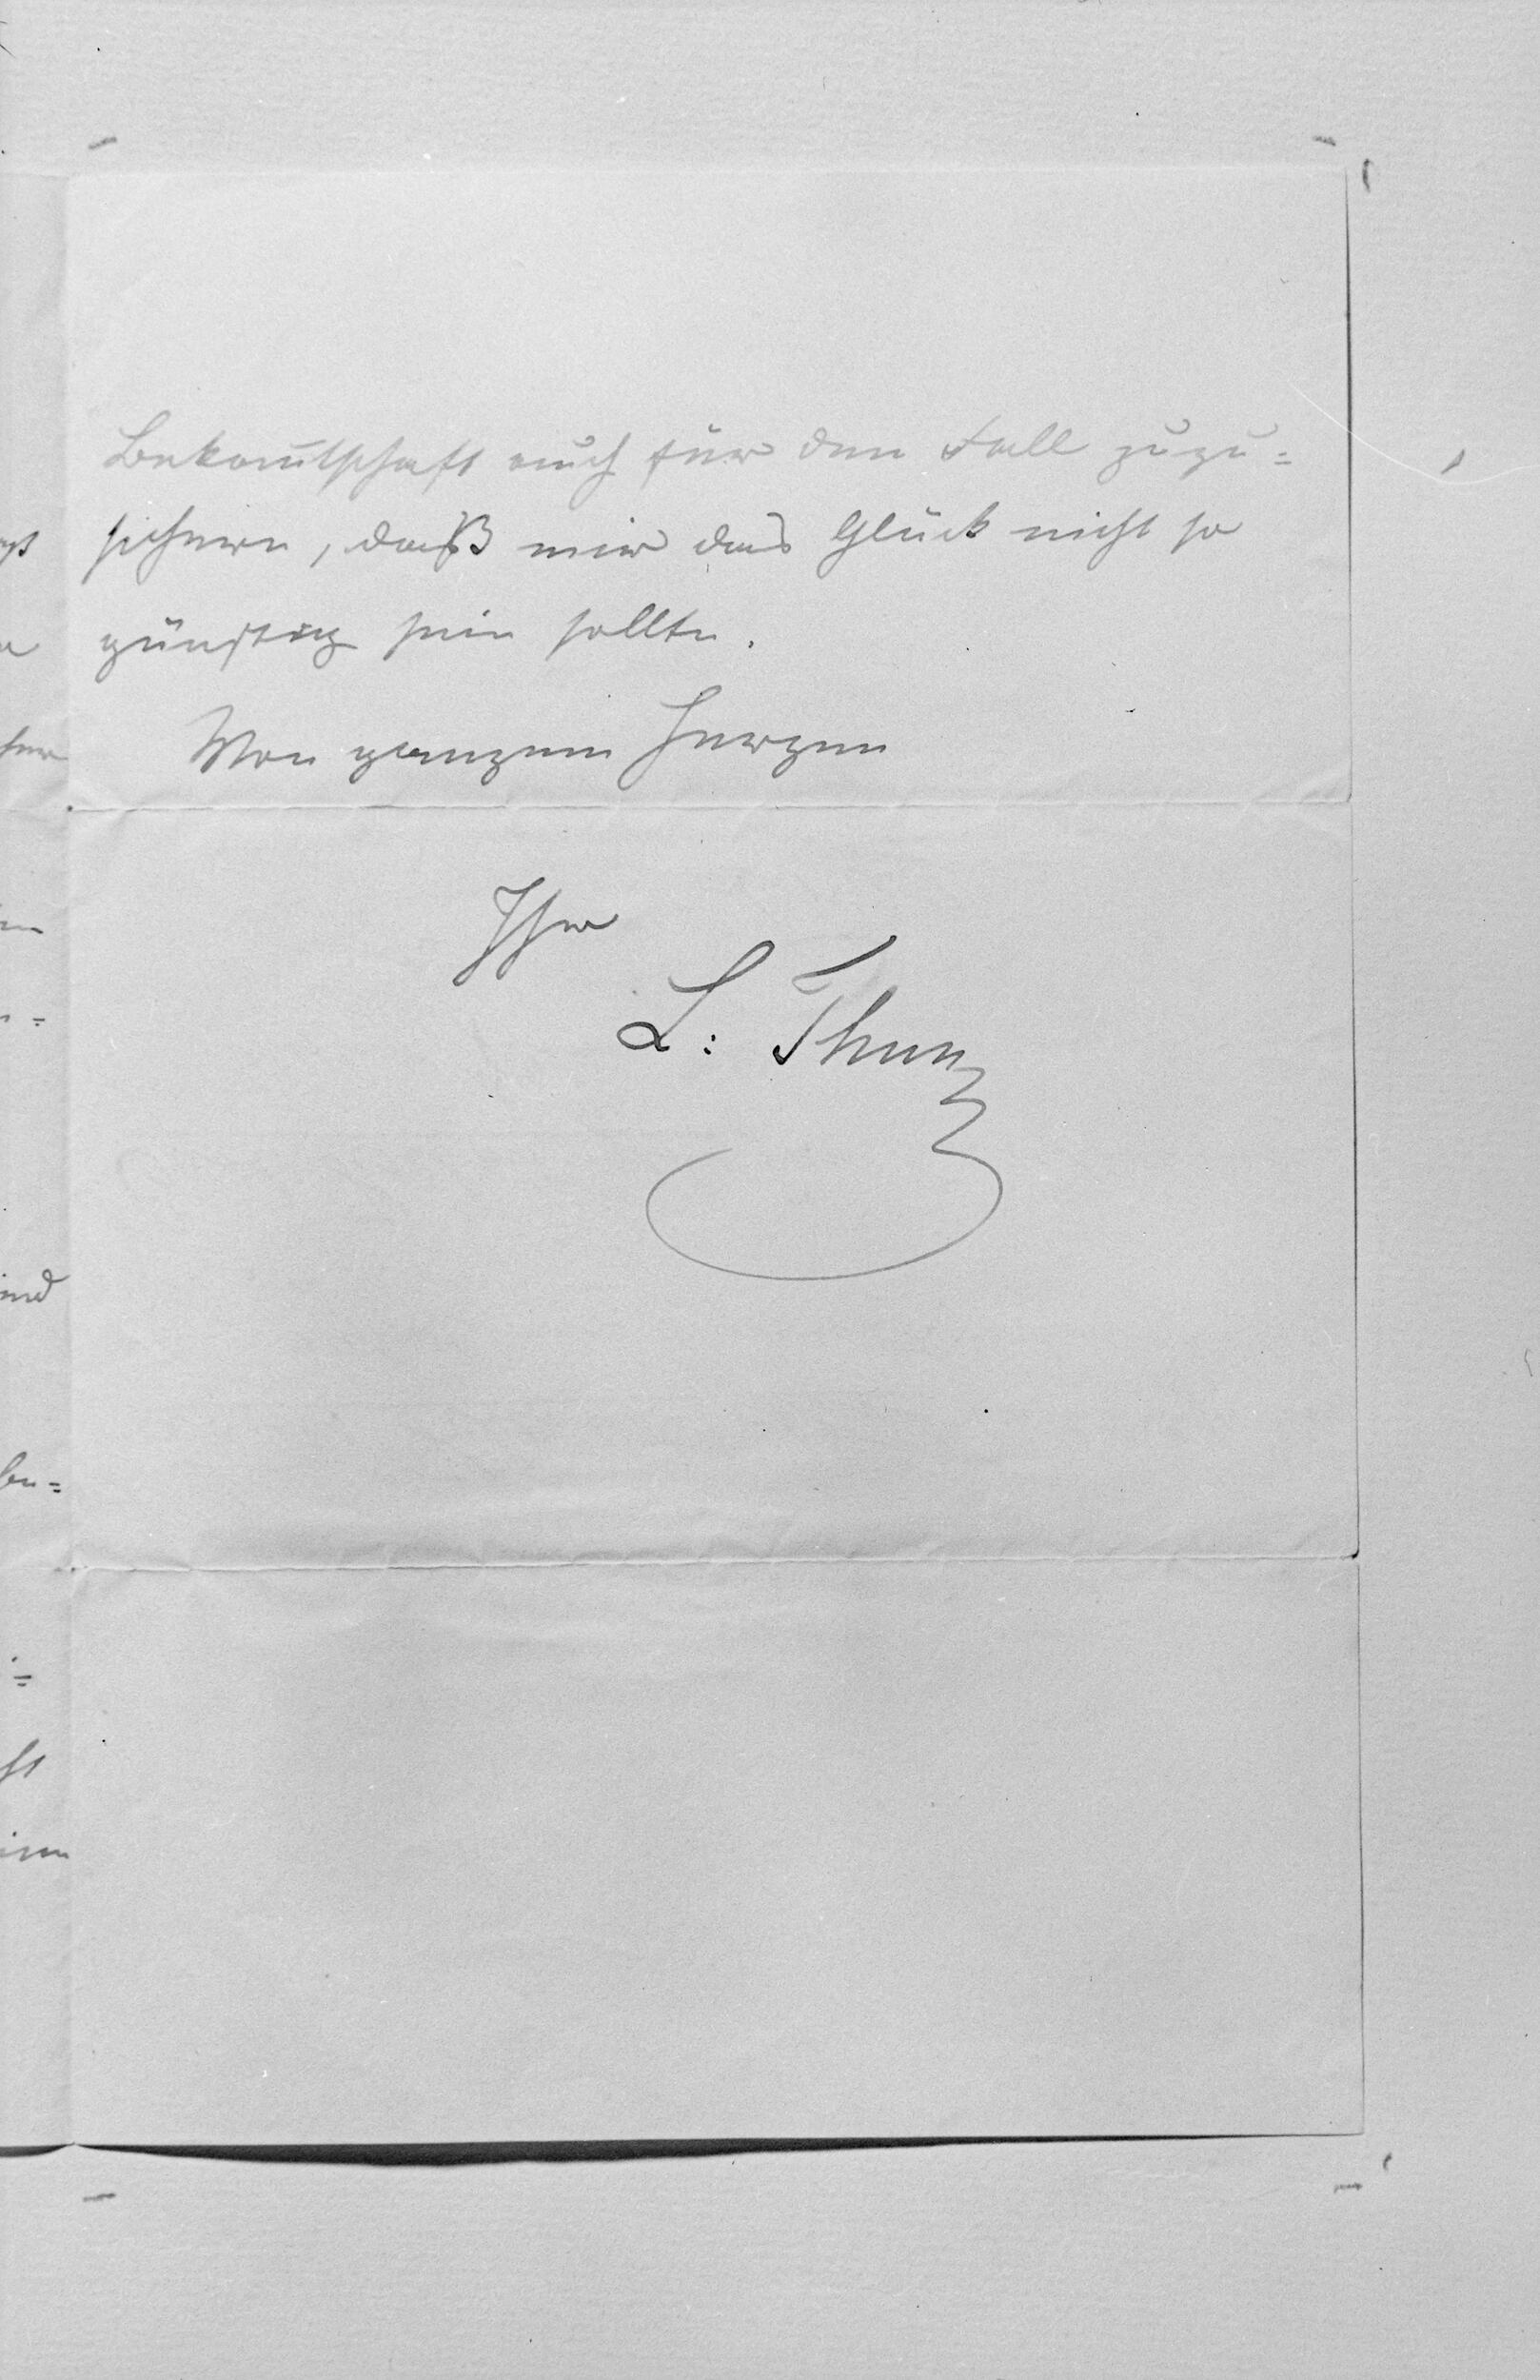 Bekan̄tschaft auch für den Fall zuzu=
sichern, daß mir das Glück nicht so
günstig sein sollte.
Von ganzem Herzen
Ihr
L: Thun